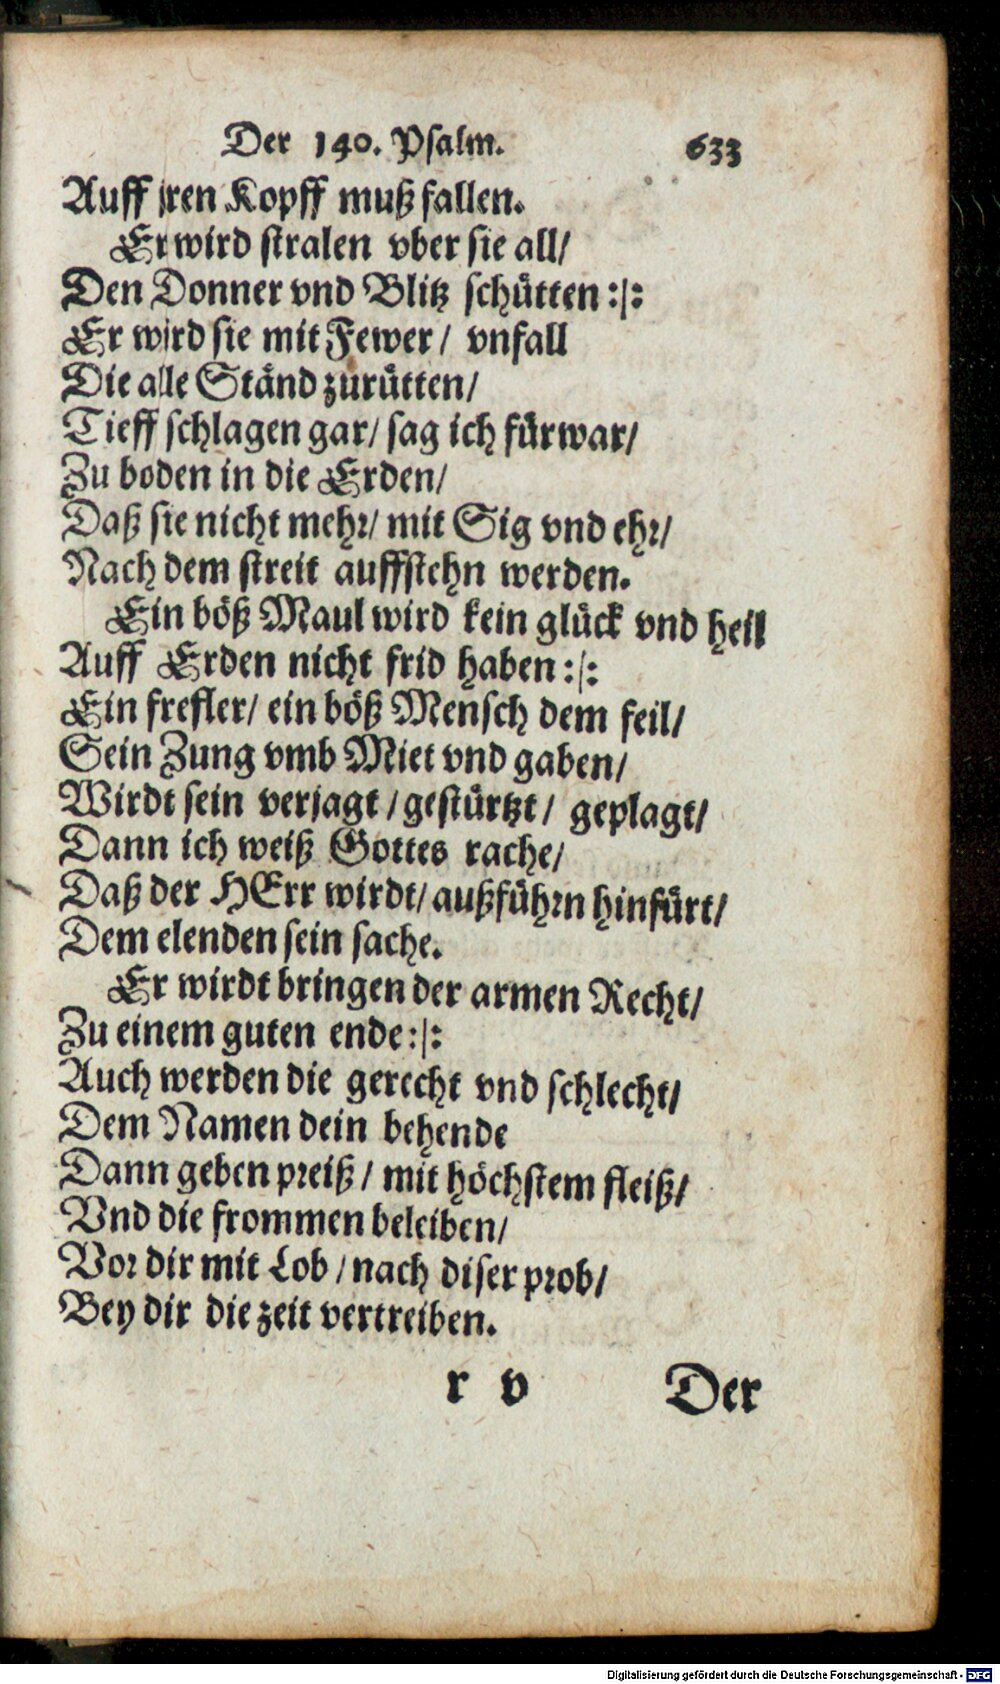 Der 140. Psalm. 633
Auff jren Kopff muß fallen.
Er wird stralen vber sie all/
Den Donner vnd Blitz schütten :|:
Er wird sie mit Fewer/ vnfall
Die alle Ständ zurütten/
Tieff schlagen gar/ sag ich fürwar/
Zu boden in die Erden/
Daß sie nicht mehr/ mit Sig vnd ehr/
Nach dem streit auffstehn werden.
Ein böß Maul wird kein glück vnd heil
Auff Erden nicht frid haben :|:
Ein frefler/ ein böß Mensch dem feil/
Sein Zung vmb Miet vnd gaben/
Wirdt sein verjagt/ gestürtzt/ geplagt/
Dann ich weiß Gottes rache/
Daß der HErr wirdt/ außführn hinfürt/
Dem elenden sein sache.
Er wirdt bringen der armen Recht/
Zu einem guten ende :|:
Auch werden die gerecht vnd schlecht/
Dem Namen dein behende
Dann geben preiß/ mit höchstem fleiß/
Vnd die frommen beleiben/
Vor dir mit Lob/ nach diser prob/
Bey dir die zeit vertreiben.
r v Der
Digitalisierung gefördert durch die Deutsche Forschungsgemeinschaft - DFG